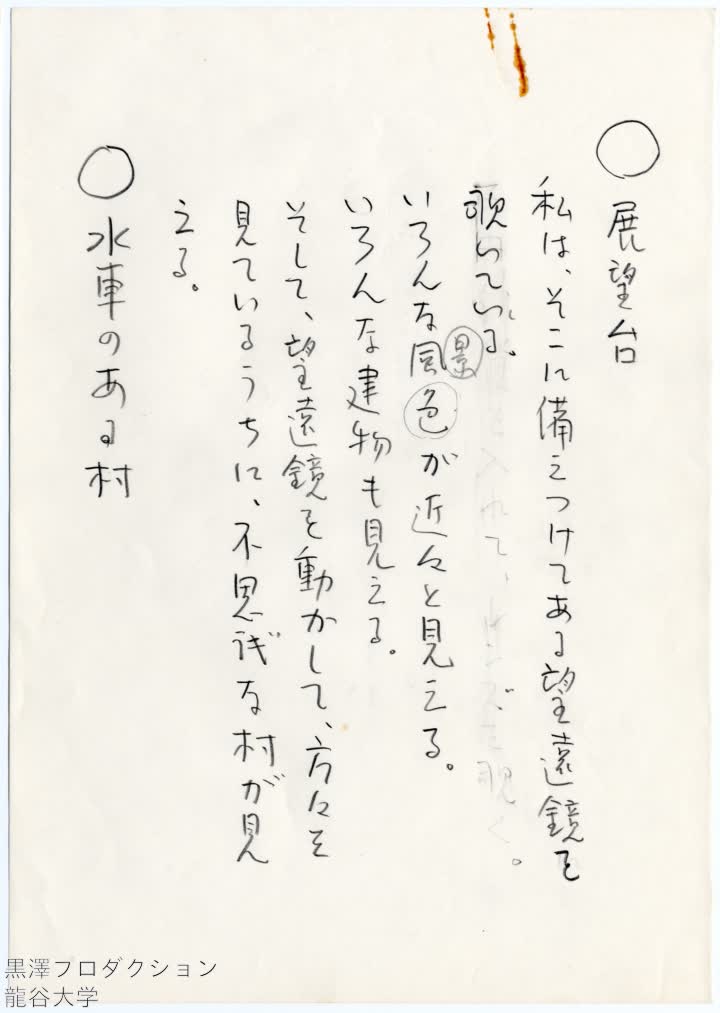 ○ 展望台
私は、そこに備えつけてある望遠鏡を
覗いている。
いろんな風景色が近々と見える。
いろんな建物も見える。
そして、望遠鏡を動かして、方々を
見ているうちに、不思議な村が見
える。
○ 水車のある村
黒澤プロダクション
龍谷大学